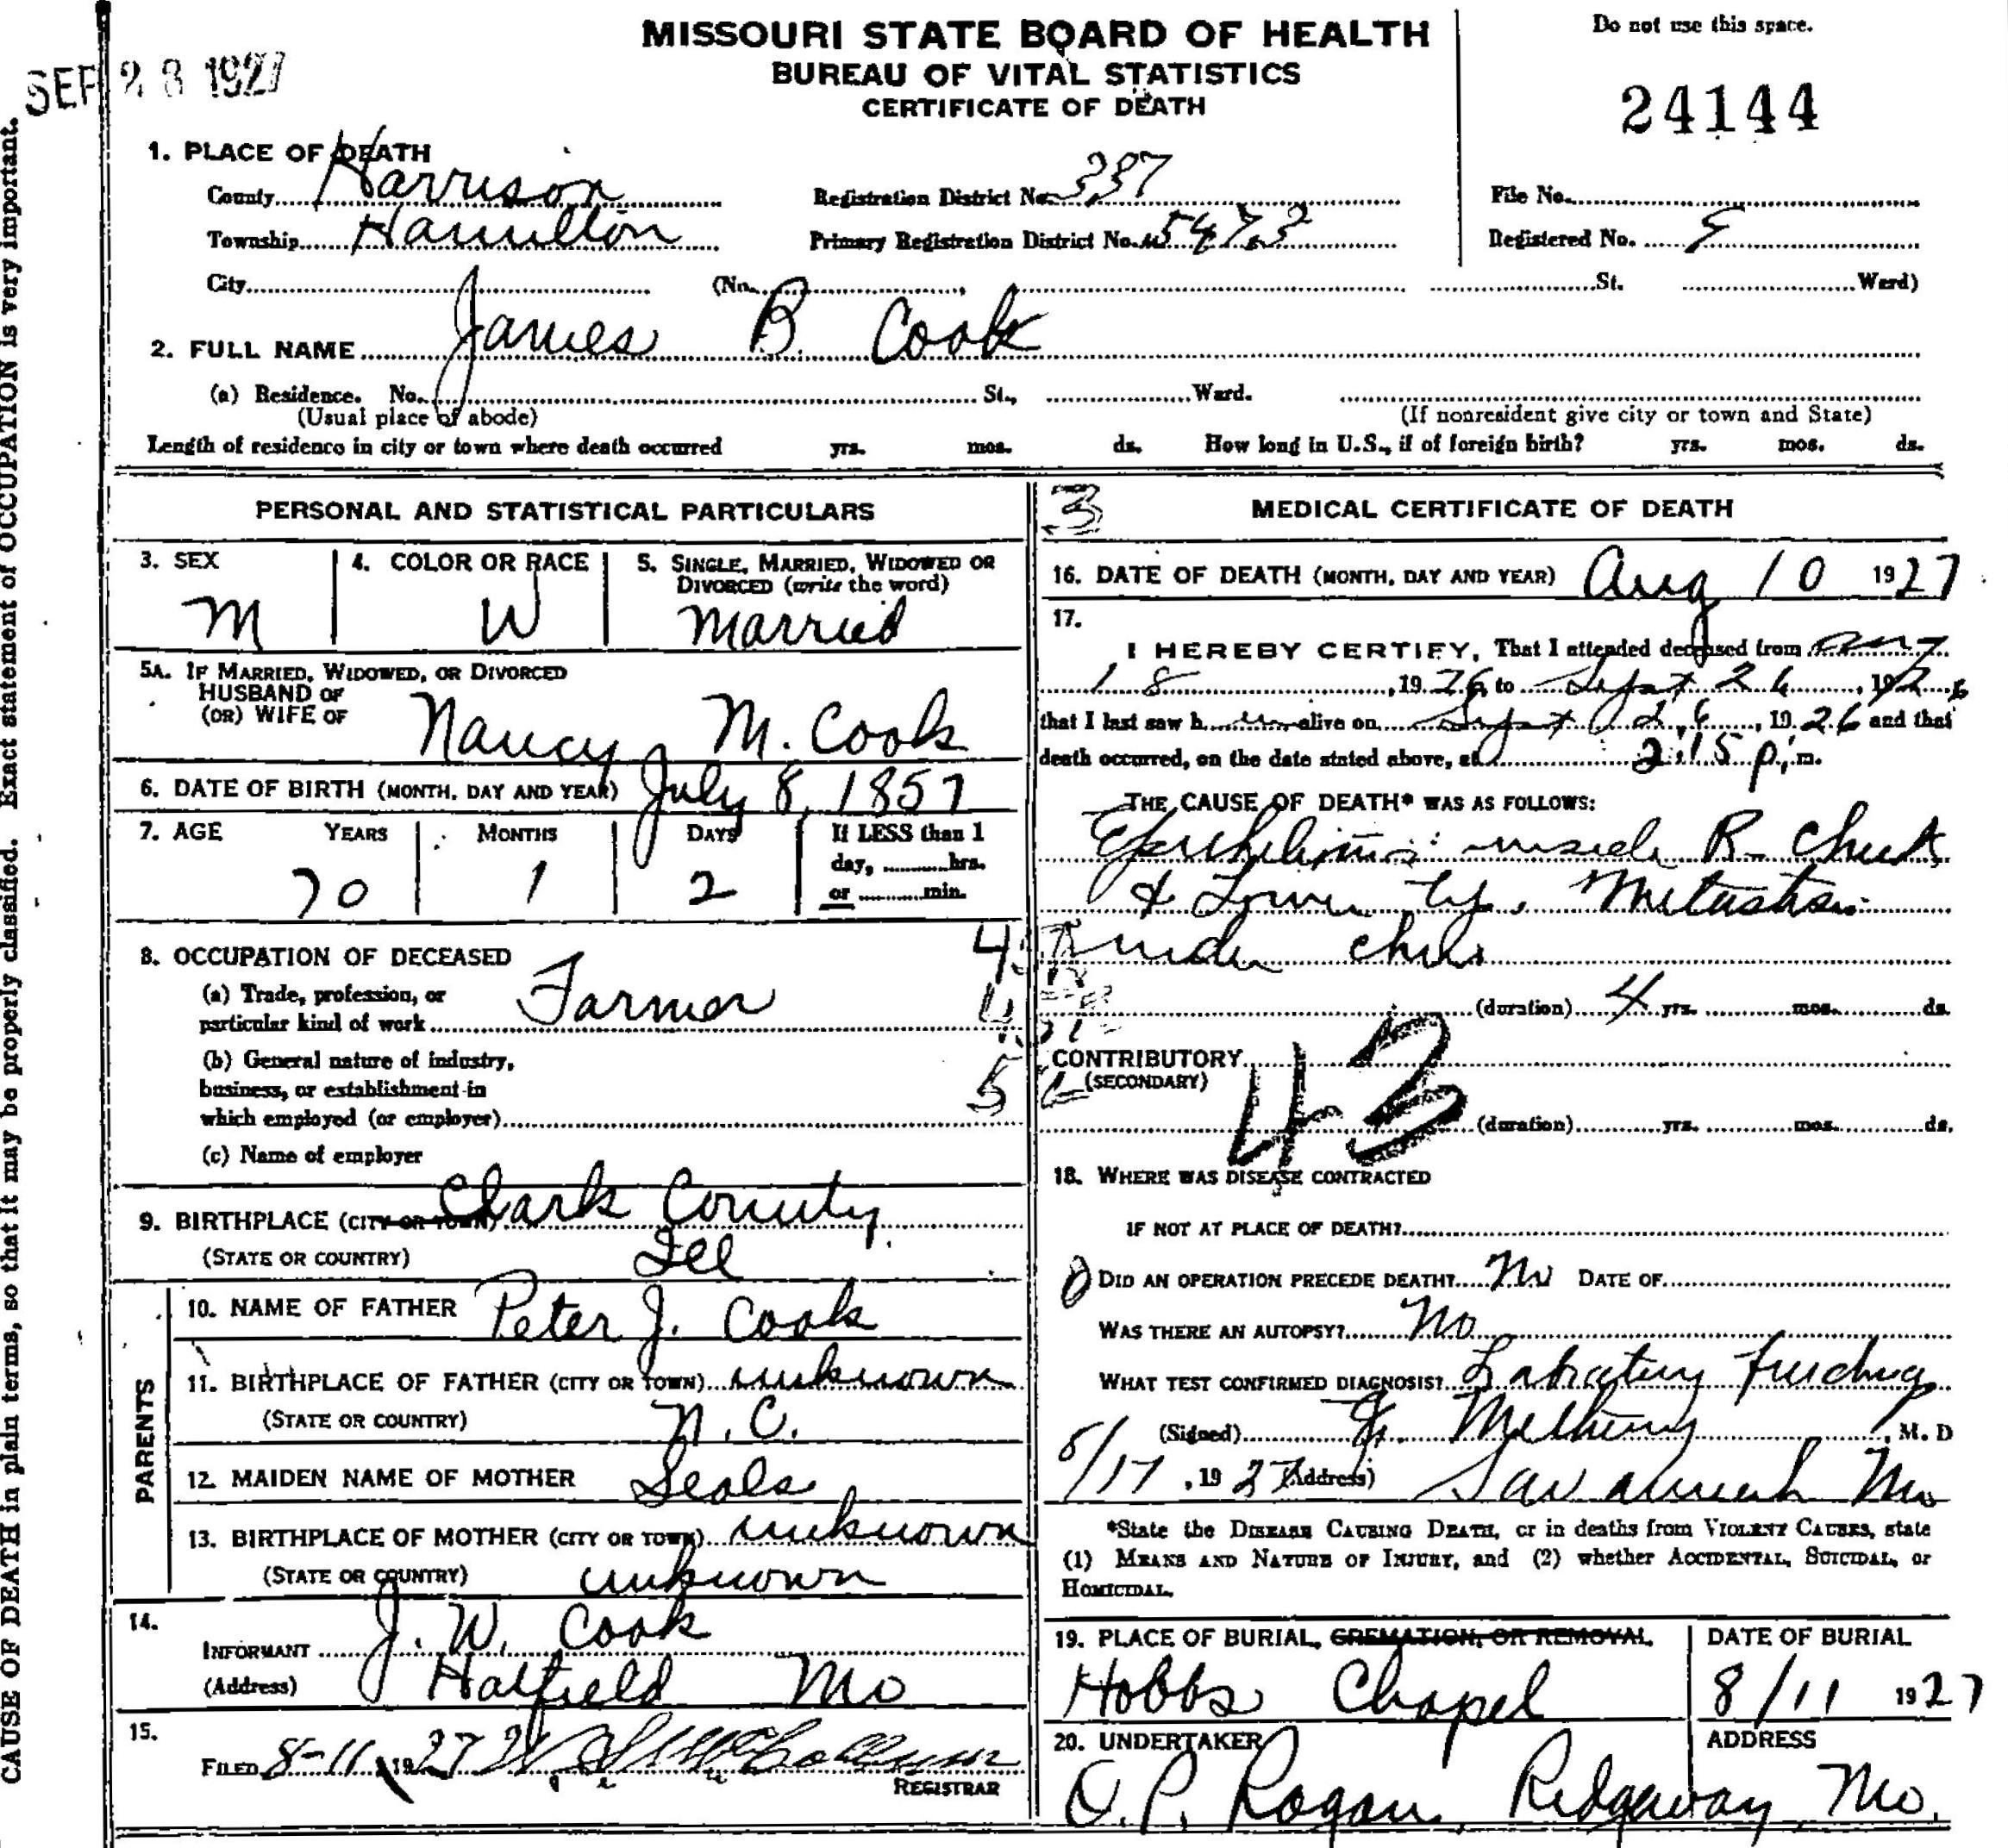 SEP 28 1927
MISSOURI STATE BOARD OF HEALTH
BUREAU OF VITAL STATISTICS
CERTIFICATE OF DEATH
Do not use this space.
24144
1. PLACE OF DEATH
County Harrison Registration District No. 337 File No.
Township Hamilton Primary Registration District No. 5473 Registered No.
City (No. , St. Ward)
2. FULL NAME James B. Cook
(a) Residence. No. St., Ward.
(Usual place of abode) (If nonresident give city or town and State)
Length of residence in city or town where death occurred yrs. mos. ds. How long in U.S., if of foreign birth? yrs. mos. ds.
PERSONAL AND STATISTICAL PARTICULARS
3. SEX 4. COLOR OR RACE 5. SINGLE, MARRIED, WIDOWED OR
DIVORCED (write the word)
M W Married
5A. IF MARRIED, WIDOWED, OR DIVORCED
HUSBAND OF
(OR) WIFE OF Nancy M. Cook
6. DATE OF BIRTH (MONTH, DAY AND YEAR) July 8, 1857
7. AGE YEARS MONTHS DAYS If LESS than 1
day, hrs.
or min.
70 1 2
8. OCCUPATION OF DECEASED
(a) Trade, profession, or
particular kind of work Farmer
(b) General nature of industry,
business, or establishment in
which employed (or employer)
(c) Name of employer
9. BIRTHPLACE (CITY OR TOWN) Clark County
(STATE OR COUNTRY) Ill
PARENTS
10. NAME OF FATHER Peter J. Cook
11. BIRTHPLACE OF FATHER (CITY OR TOWN) unknown
(STATE OR COUNTRY) N. C.
12. MAIDEN NAME OF MOTHER Seals
13. BIRTHPLACE OF MOTHER (CITY OR TOWN) unknown
(STATE OR COUNTRY) unknown
14.
INFORMANT J. W. Cook
(Address) Hatfield Mo
15.
FILED 8-11, 1927
REGISTRAR
3
MEDICAL CERTIFICATE OF DEATH
16. DATE OF DEATH (MONTH, DAY AND YEAR) Aug 10 1927
17.
I HEREBY CERTIFY, That I attended deceased from Aug
18, 1926, to Sept 26, 1926
that I last saw him alive on Sept 26, 1926 and that
death occurred, on the date stated above, at 2:15 p. m.
THE CAUSE OF DEATH* WAS AS FOLLOWS:
Epithelioma inside R- Cheek
& Lower lip. Metastasis
under chin
(duration) 4 yrs. mos. ds.
CONTRIBUTORY
(SECONDARY)
43
(duration) yrs. mos. ds.
18. WHERE WAS DISEASE CONTRACTED
IF NOT AT PLACE OF DEATH?
DID AN OPERATION PRECEDE DEATH? No DATE OF
WAS THERE AN AUTOPSY? No
WHAT TEST CONFIRMED DIAGNOSIS? Labratory finding
(Signed) , M. D
8/17, 1927 (Address) Savannah Mo
*State the DISEASE CAUSING DEATH, or in deaths from VIOLENT CAUSES, state
(1) MEANS AND NATURE OF INJURY, and (2) whether ACCIDENTAL, SUICIDAL, or
HOMICIDAL.
19. PLACE OF BURIAL, CREMATION, OR REMOVAL DATE OF BURIAL
Hobbs Chapel 8/11 1927
20. UNDERTAKER ADDRESS
O. P. Rogan, Ridgeway, Mo.
CAUSE OF DEATH in plain terms, so that it may be properly classified. Exact statement of OCCUPATION is very important.